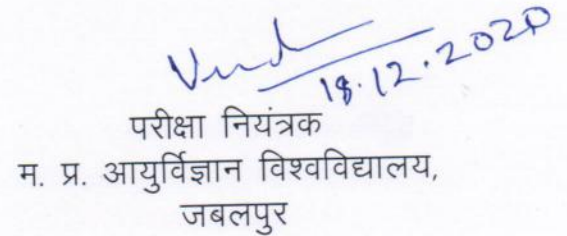 18.12.2020
परीक्षा नियंत्रक
म. प्र. आयुर्विज्ञान विश्वविद्यालय,
जबलपुर